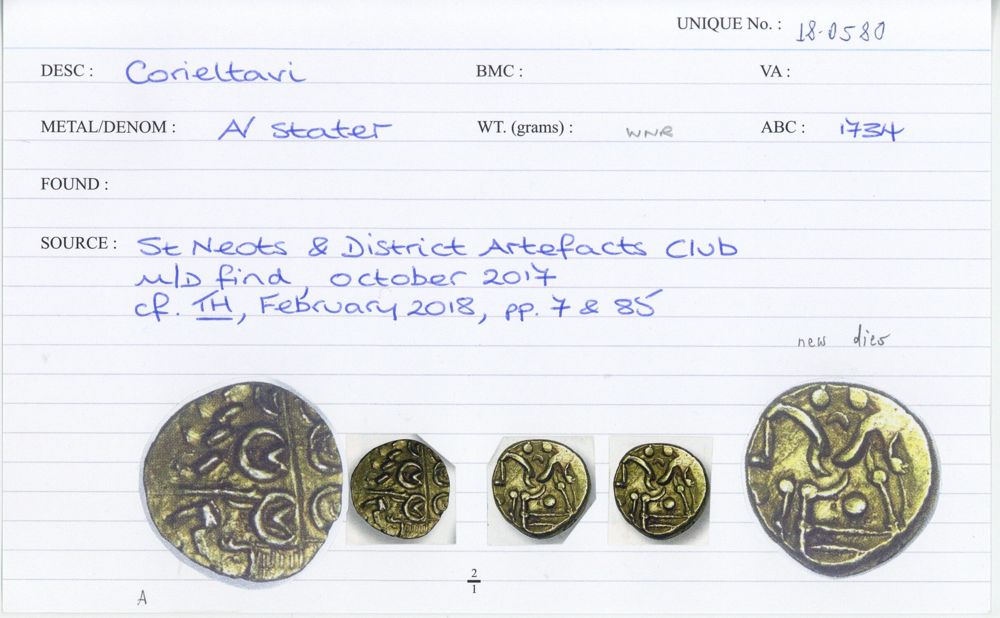 UNIQUE No. : 18-0580
DESC : Corieltavi BMC : VA :
METAL/DENOM : A/ stater WT. (grams) : WNR ABC : 1734
FOUND :
SOURCE : St Neots & District Artefacts Club
M/D find, October 2017
cf. TH, February 2018, pp. 7 & 85
new dies
2
1
A